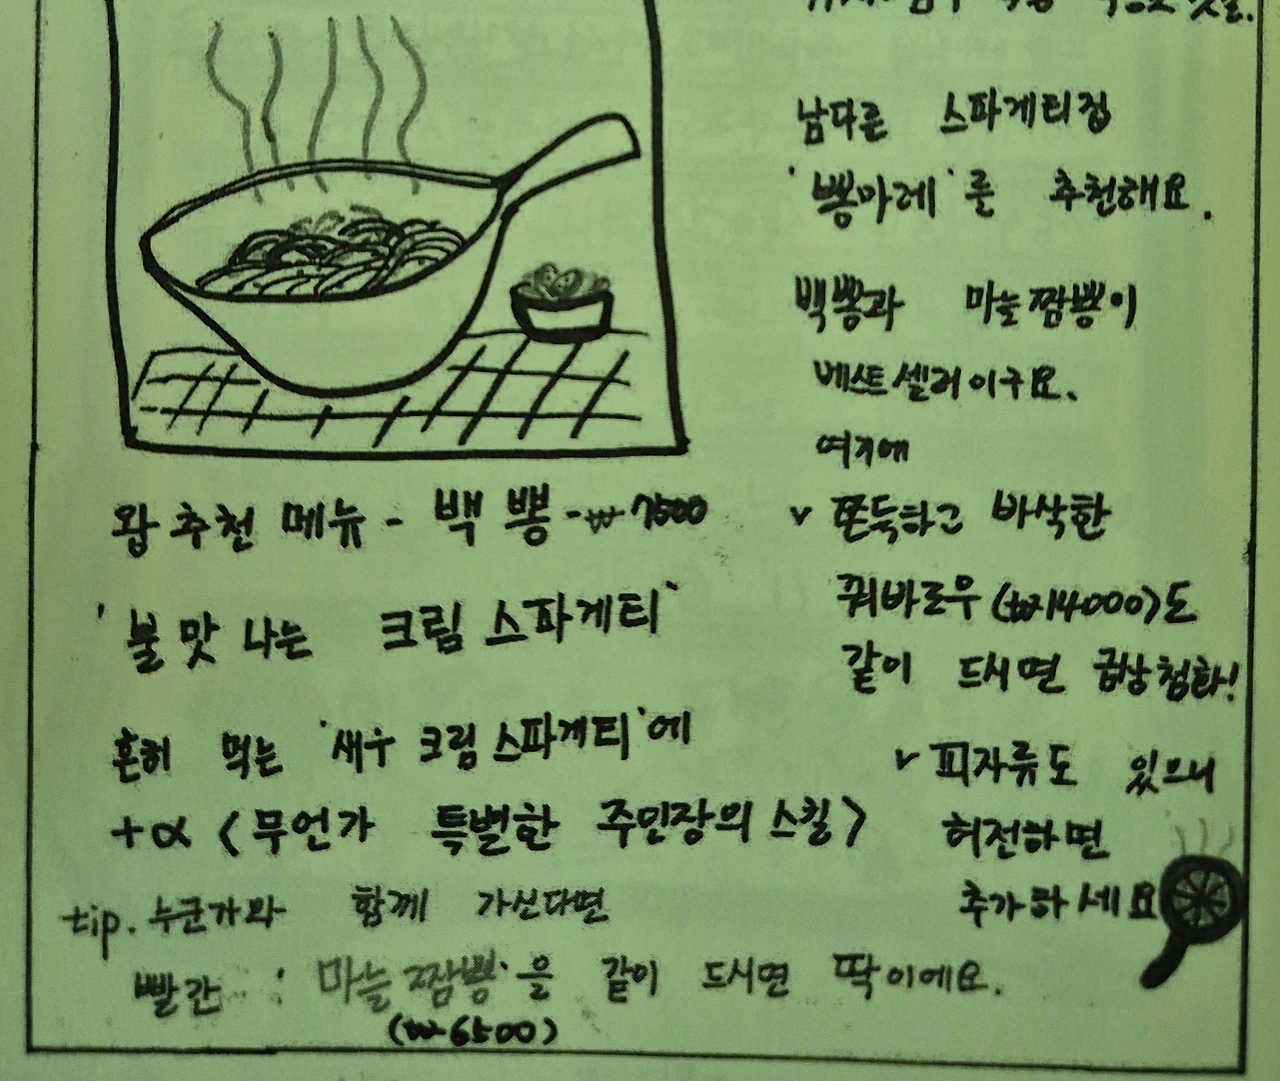 남다른 스파게티집
'뽕마레'를 추천해요.
백뽕과 마늘짬뽕이
베스트셀러이구요.
여기에
v 쫀득하고 바삭한
꿔바로우(₩14000)도
같이 드시면 금상첨화!
v 피자류도 있으니
허전하면
추가하세요
왕추천 메뉴 - 백뽕 - ₩7500
'불맛 나는 크림 스파게티'
흔히 먹는 '새우 크림 스파게티'에
+α <무언가 특별한 주인장의 스킬>
tip. 누군가와 함께 가신다면
빨간 '마늘짬뽕'을 같이 드시면 딱이에요.
(₩6500)